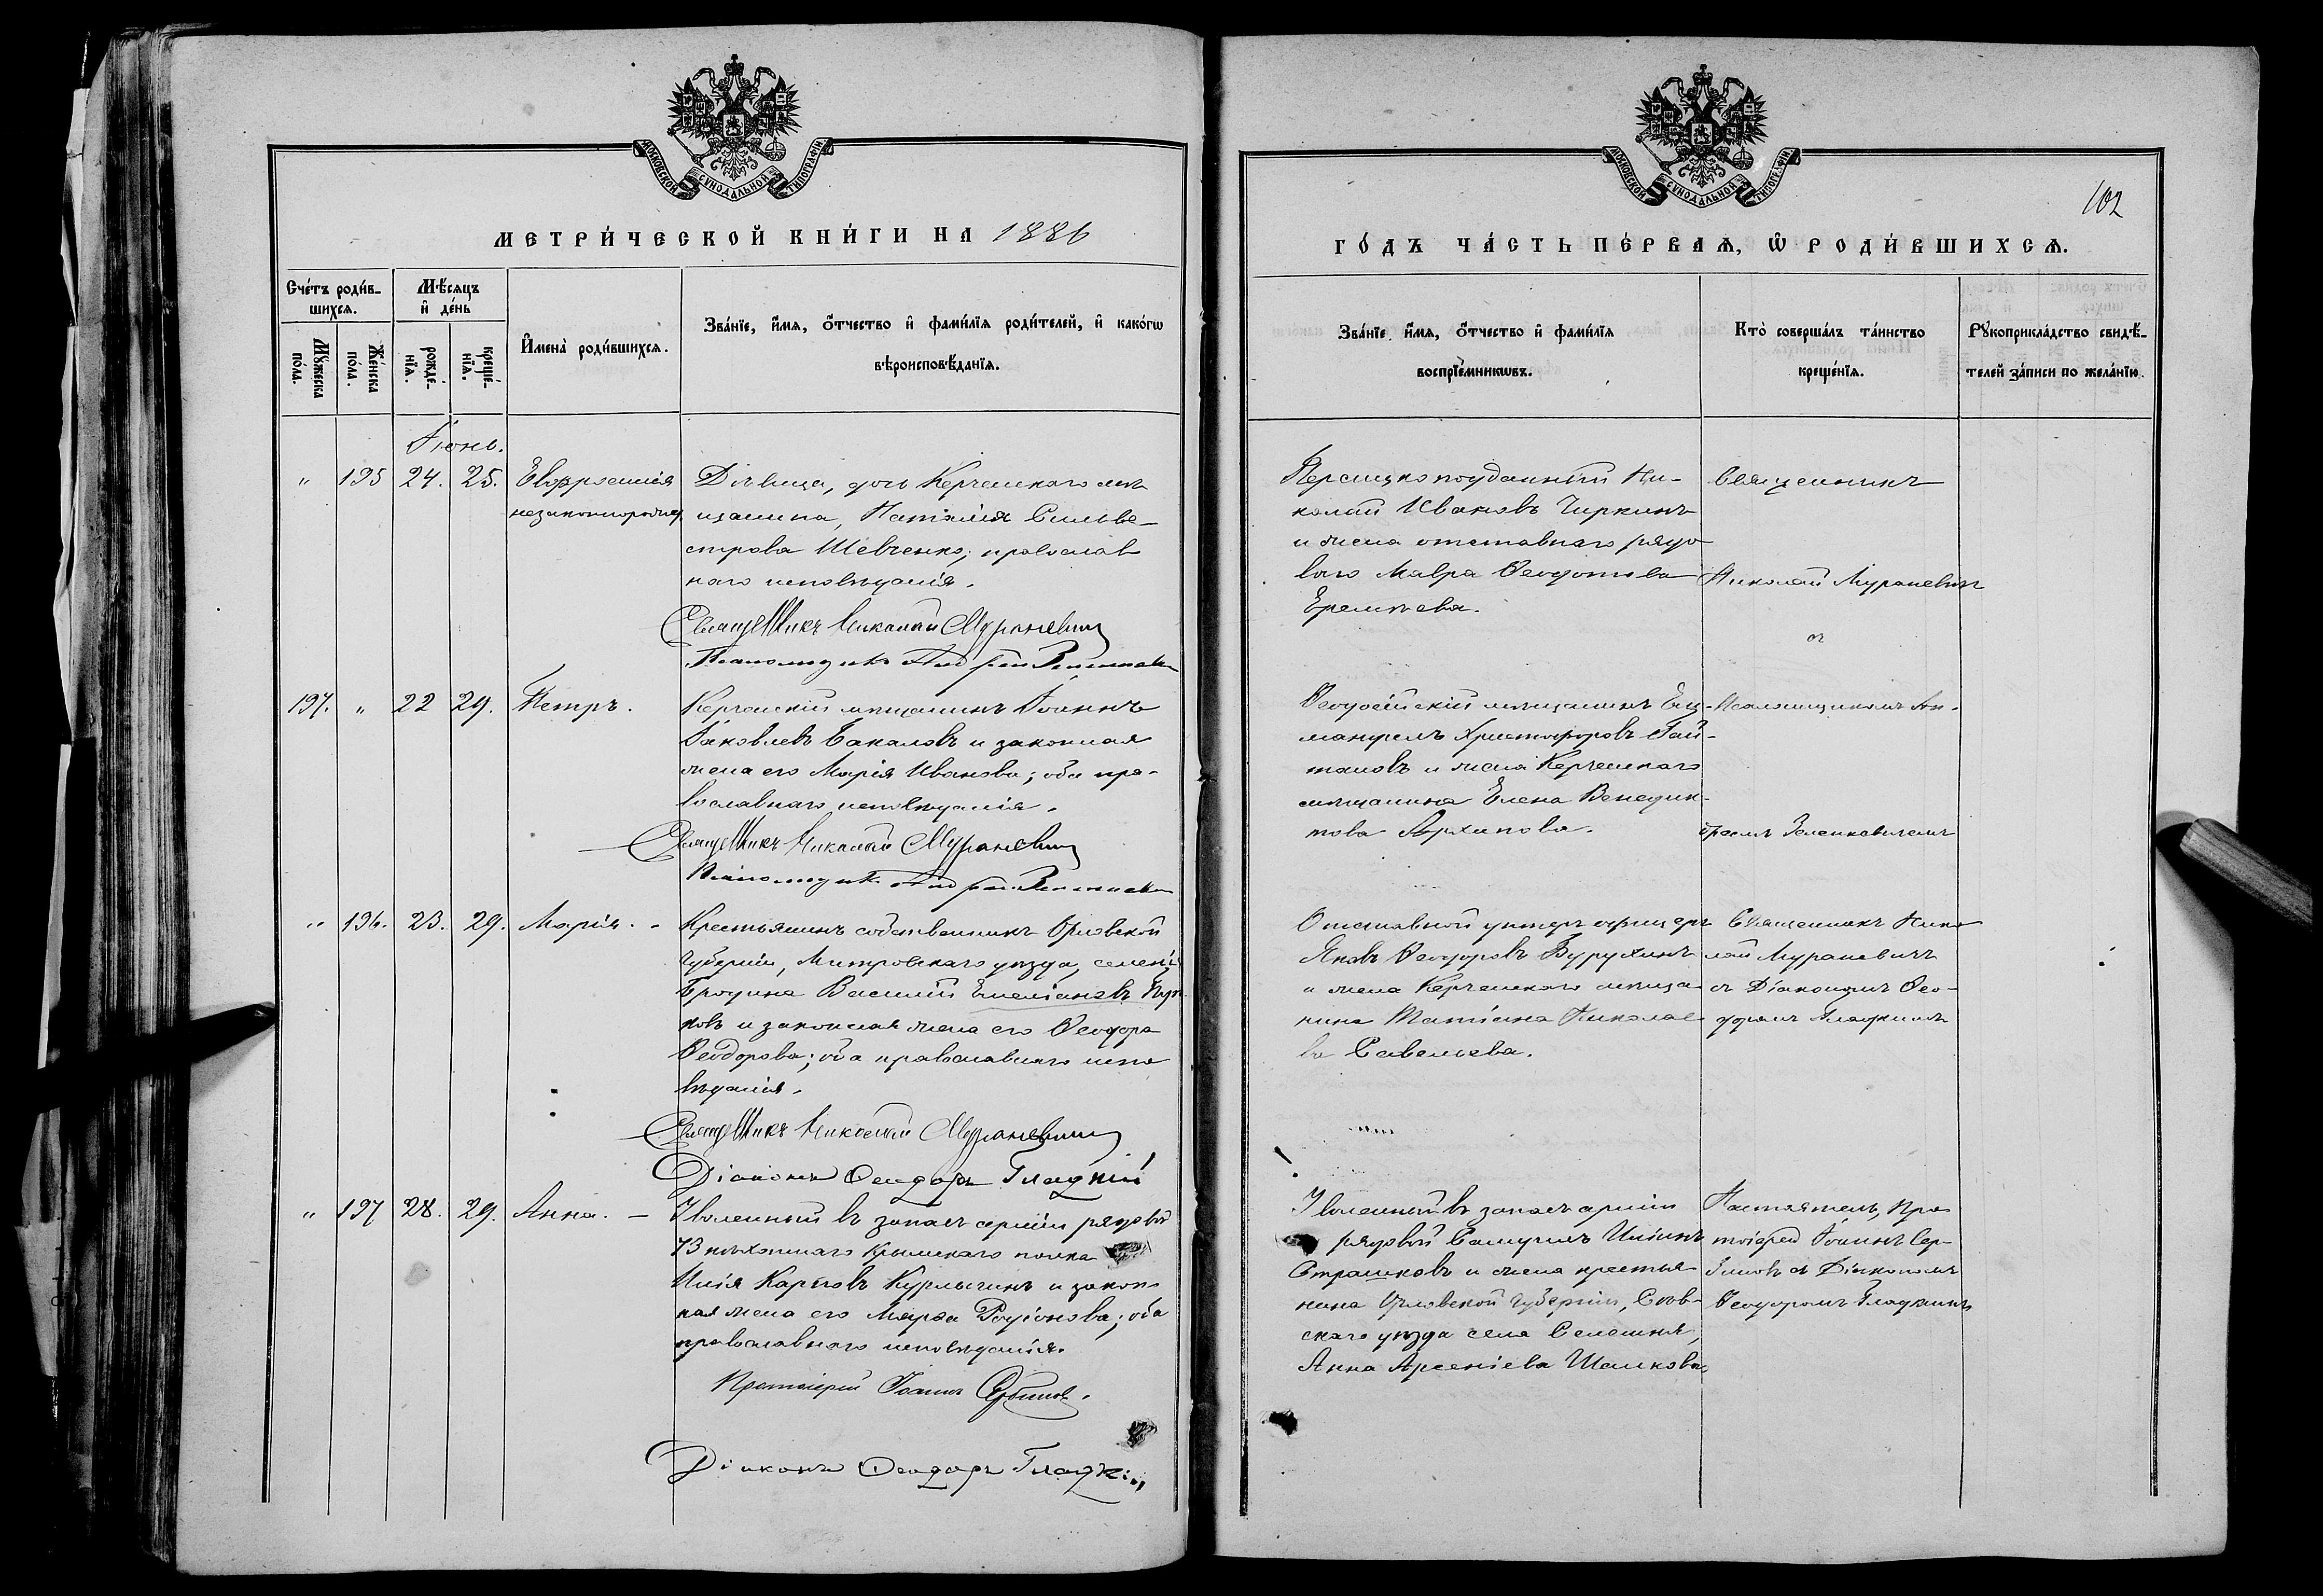 МОСКОВСКОЙ СѴНОДАЛЬНОЙ ТИПОГРАФІИ
МЕТРИ́ЧЕСКОЙ КНИ́ГИ НА 1886
Счéтъ роди́в-
шихся.
Мꙋ́жеска
пóла.
Жéнска
пóла.
Мѣ́сяцъ
и҆ дéнь
рождé-
нїѧ.
крещé-
нїѧ.
И҆мена̀ роди́вшихсѧ.
Звáнїе, и҆́мѧ, ѻ҆́тчество и҆ фами́лїѧ роди́телей, и҆ какóгѡ
вѣроисповѣ́данїѧ.
Іюнь.
" 195 24. 25. Евфросинія
незаконнорожд
Дѣвица, дочь Керченскаго мѣ
щанина, Наталія Сильве-
строва Шевченко; православ
наго исповѣданія.
Священникъ Николай Мураневич
Псаломщикъ Андрей
197. " 22 29. Петръ.
Керченскій мѣщанинъ Іоаннъ
Іаковлевъ Бакаловъ и законная
жена его Марія Иванова; оба пра-
вославнаго исповѣданія.
Священникъ Николай Мураневич
Псаломщикъ Андрей
" 196. 23. 29. Марія. -
Крестьянинъ собственникъ Орловской
губерніи, Митровскаго уѣзда, селенія
Бродина Василій Емеліановъ
ковъ и законная жена его Ѳеодора
Ѳеодорова; оба православнаго испо
вѣданія.
Священникъ Николай Мураневич
Діаконъ Ѳеодоръ Гладкій
" 197 28. 29. Анна. -
Уволенный въ запасъ арміи рядовой
73 пѣхотнаго Крымскаго полка
Илія Карповъ Курлыгинъ и закон-
ная жена его Марѳа Родіонова; оба
православнаго исповѣданія.
Протоіерей Іоаннъ Сербиновъ.
Діаконъ Ѳеодоръ Гладкій
МОСКОВСКОЙ СѴНОДАЛЬНОЙ ТИПОГРАФІИ
102
ГÓДЪ ЧÁСТЬ ПÉРВАѦ, Ѡ҆ РОДИ́ВШИХСѦ.
Звáнїе, и҆́мѧ, ѻ҆́тчество и҆ фами́лїѧ
воспрїе́мникѡвъ.
Кто̀ совершáлъ тáинство
крещéнїѧ.
Рꙋкоприклáдство свидѣ́-
телей зáписи по желáнїю.
Персидскоподданный Ни-
колай Ивановъ Чиркинъ
и жена отставнаго рядо
ваго Мавра Ѳеодотова
Еремѣева.
Священникъ
Николай Мураневичъ
съ
Ѳеодосійскій мѣщанинъ Ем-
мануилъ Христофоровъ Гай-
тановъ и жена Керченскаго
мѣщанина Елена Венедик-
това Архипова.
Псаломщикомъ Ан-
дреемъ Зеленкевичемъ
Отставной унтеръ офицеръ
Яковъ Ѳеодоровъ Бурухинъ
и жена Керченскаго мѣща-
нина Татіана Николае-
ва Савельева.
Священникъ Нико
лай Мураневичъ
съ Діакономъ Ѳео-
доромъ Гладкимъ
Уволенный въ запасъ арміи
рядовой Самуилъ Иліинъ
Страшковъ и жена крестья-
нина Орловской губерніи, Сѣв-
скаго уѣзда села Селешня,
Анна Арсеніева Шашкова.
Настоятель, Про
тоіерей Іоаннъ Сер-
биновъ съ Діакономъ
Ѳеодоромъ Гладкимъ